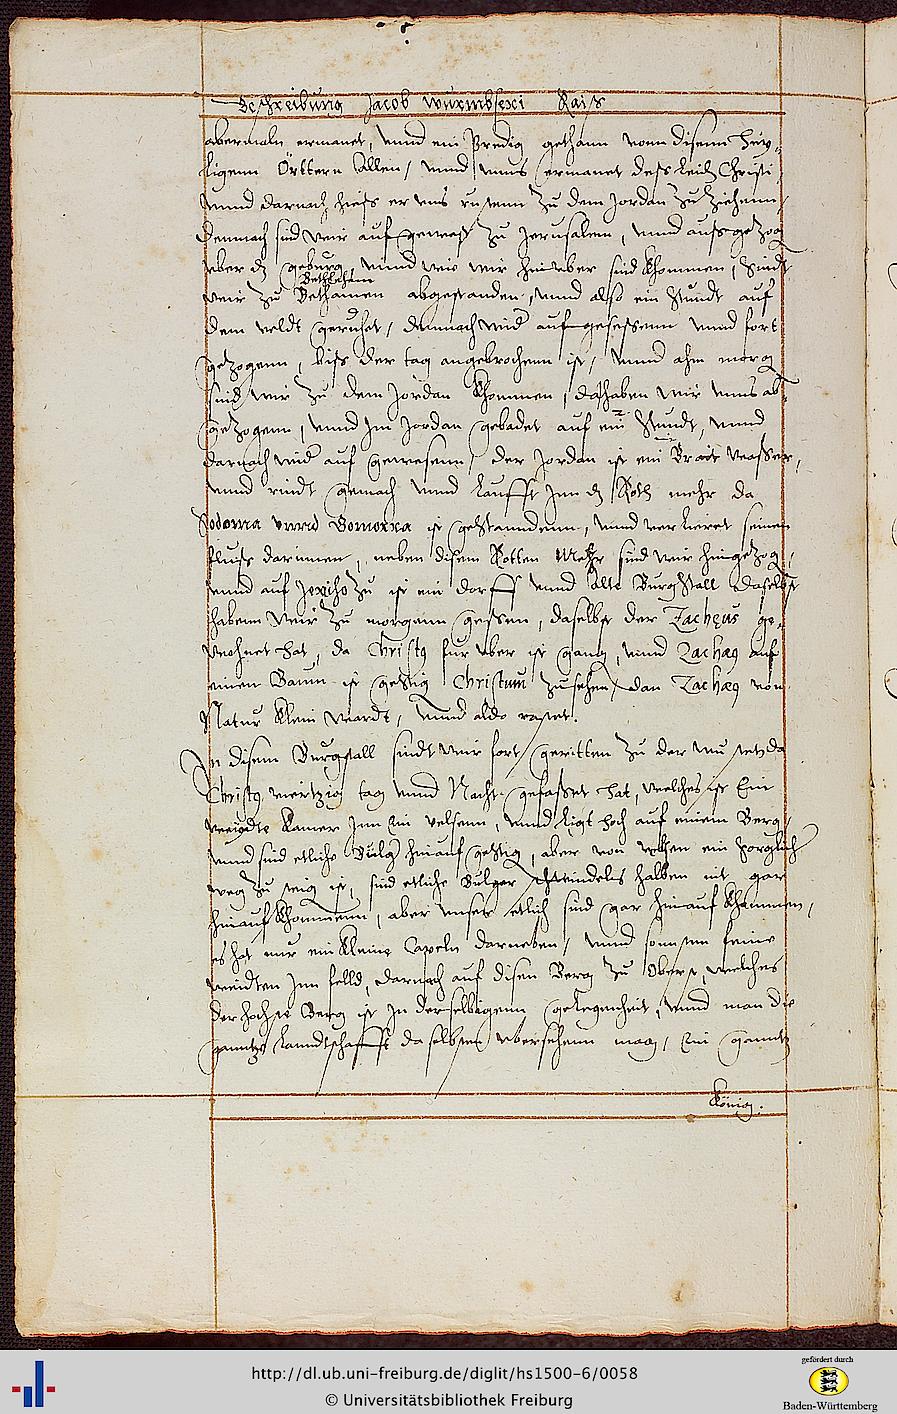 Beschreibung Jacob Wurmbseri Raiß
abermaln ermanet, vnnd ein Predig gethann vonn disenn hey„
ligenn Örttern allen, vnnd vnns ermanet deß leids Christi,
vnnd darnach hieß er vns rüstenn zu dem Jordan zu ziehenn,
demnach sind wir auf gewest zu Jerusalem, vnnd auß gezog
vber dz geburg, vnnd wie wir hinuber sind khommen, sindt
Bethlehem
wir zu Bethanien abgestanden, vnnd also ein stundt auf
dem veldt geruhet, demnach wid auf gesessenn vnnd fort
gezogenn, biß der tag angebrochenn ist, vnnd ahm morg
sind wir zu dem Jordan khommen, da haben wir vnns ab„
gezogenn, vnnd Im Jordan gebadet auf ein stundt, vnnd
darnach wid auf gewesenn, der Jordan ist ein Brait wasser,
vnnd rindt gemach vnnd laufft Inn dz Roth mehr da
Sodoma vnnd Gomorra ist gestanndenn, vnnd verlieret seinen
fluß darinnen, neben disem Rotten Mehr sind wir hingezog,
vnnd auf Jericho zu ist ein dorff vnnd alte Burgstall daselbst
habenn wir zu morgenn gessen, daselbst der Zacheus ge„
wohnet hat, da Christus fur vber ist gang, vnnd Zacheus auf
einen Baum ist gestig Christum zusehen, dan Zacheus von
Natur klein wardt, vnnd aldo rastet.
In disem Burgstall sindt wir fort geritten zu der wüsten, da
Christus viertzig tag vnnd Nacht gefasset hat, welches ist Ein
Kamer Inn ein velsenn, vnnd ligt hoch auf einem Berg,
vnnd sind etliche Bilg hinauf gestig, aber von wegen ein sorglich
weg zu steig ist, sind etliche Bilger schwindels halben nit gar
hinauf khommenn, aber vnser etlich sind gar hinauf khommen,
es hat nur ein kleine Capeln darneben, vnnd sonsten keine
Inn felld, darnach auf disen Berg zu Oberst, welches
der hochste Berg ist In derselbigenn gelegenheit, vnnd man die
ganntze Lanndtschafft daselbsten vbersehenn mag, Ein ganntz
König.
http://dl.ub.uni-freiburg.de/diglit/hs1500-6/0058
© Universitätsbibliothek Freiburg
gefördert durch
Baden-Württemberg